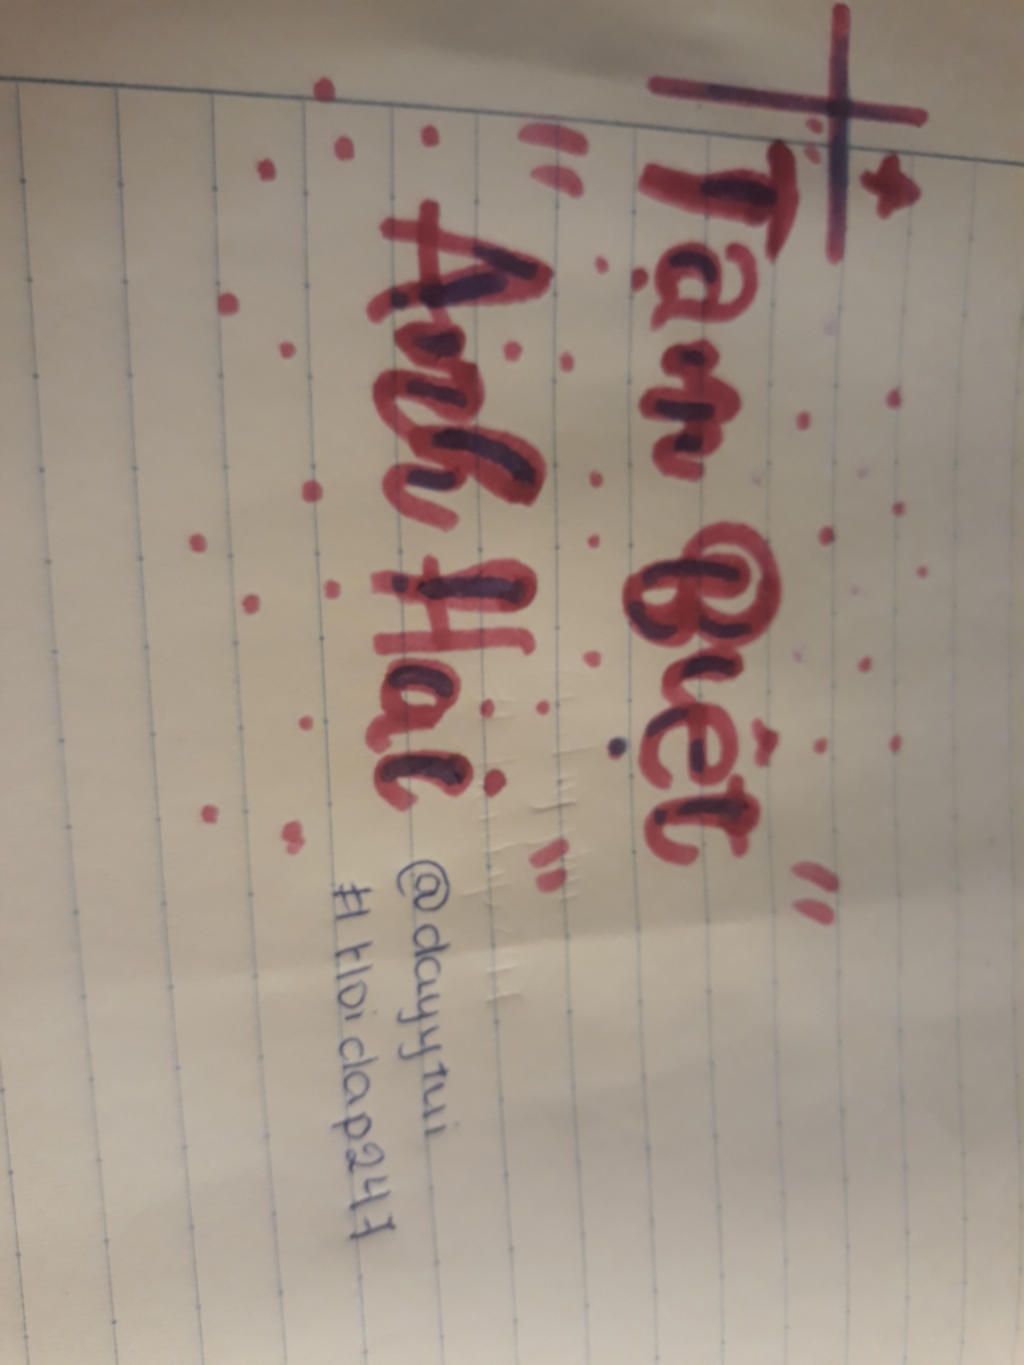 "Tạm Biệt"
"Anh Hai"
@dayytui
#Hoidap247